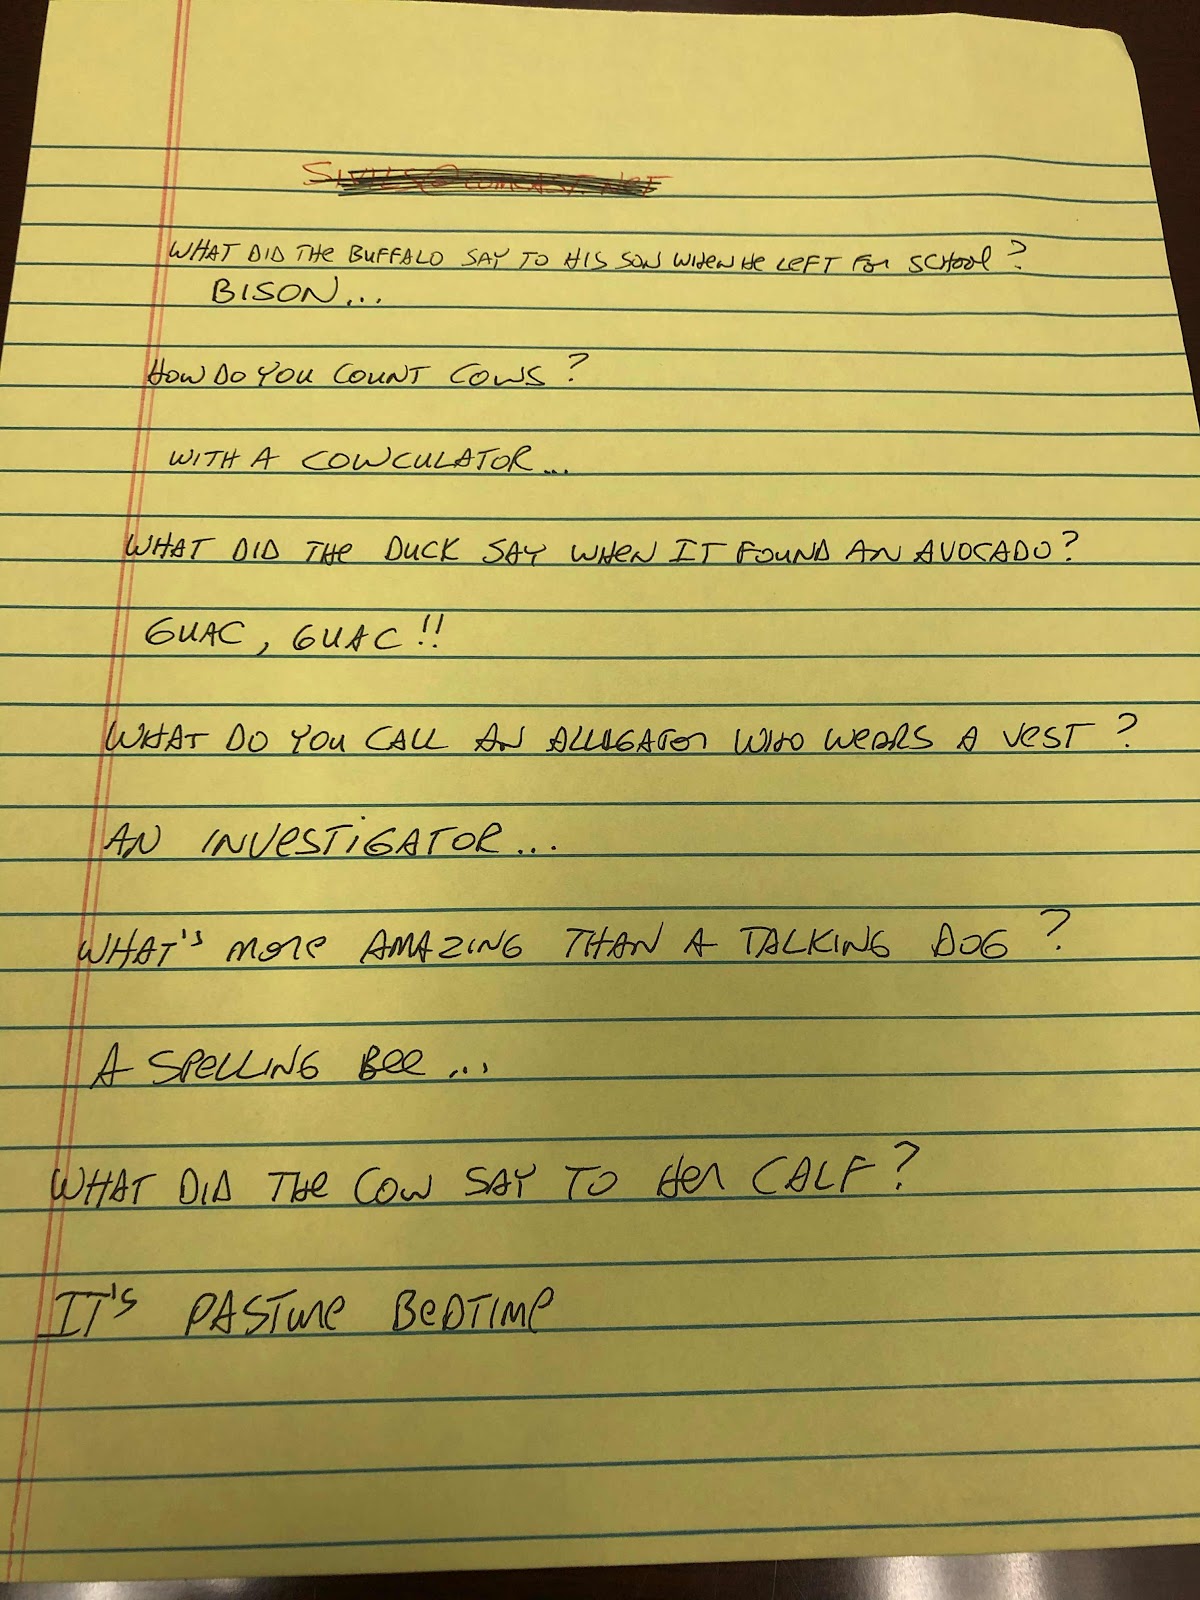 WHAT DID THE BUFFALO SAY TO HIS SON WHEN HE LEFT FOR SCHOOL?
BISON...
HOW DO YOU COUNT COWS?
WITH A COWCULATOR...
WHAT DID THE DUCK SAY WHEN IT FOUND AN AVOCADO?
GUAC, GUAC!!
WHAT DO YOU CALL AN ALLIGATOR WHO WEARS A VEST?
AN INVESTIGATOR...
WHAT'S MORE AMAZING THAN A TALKING DOG?
A SPELLING BEE...
WHAT DID THE COW SAY TO HER CALF?
IT'S PASTURE BEDTIME